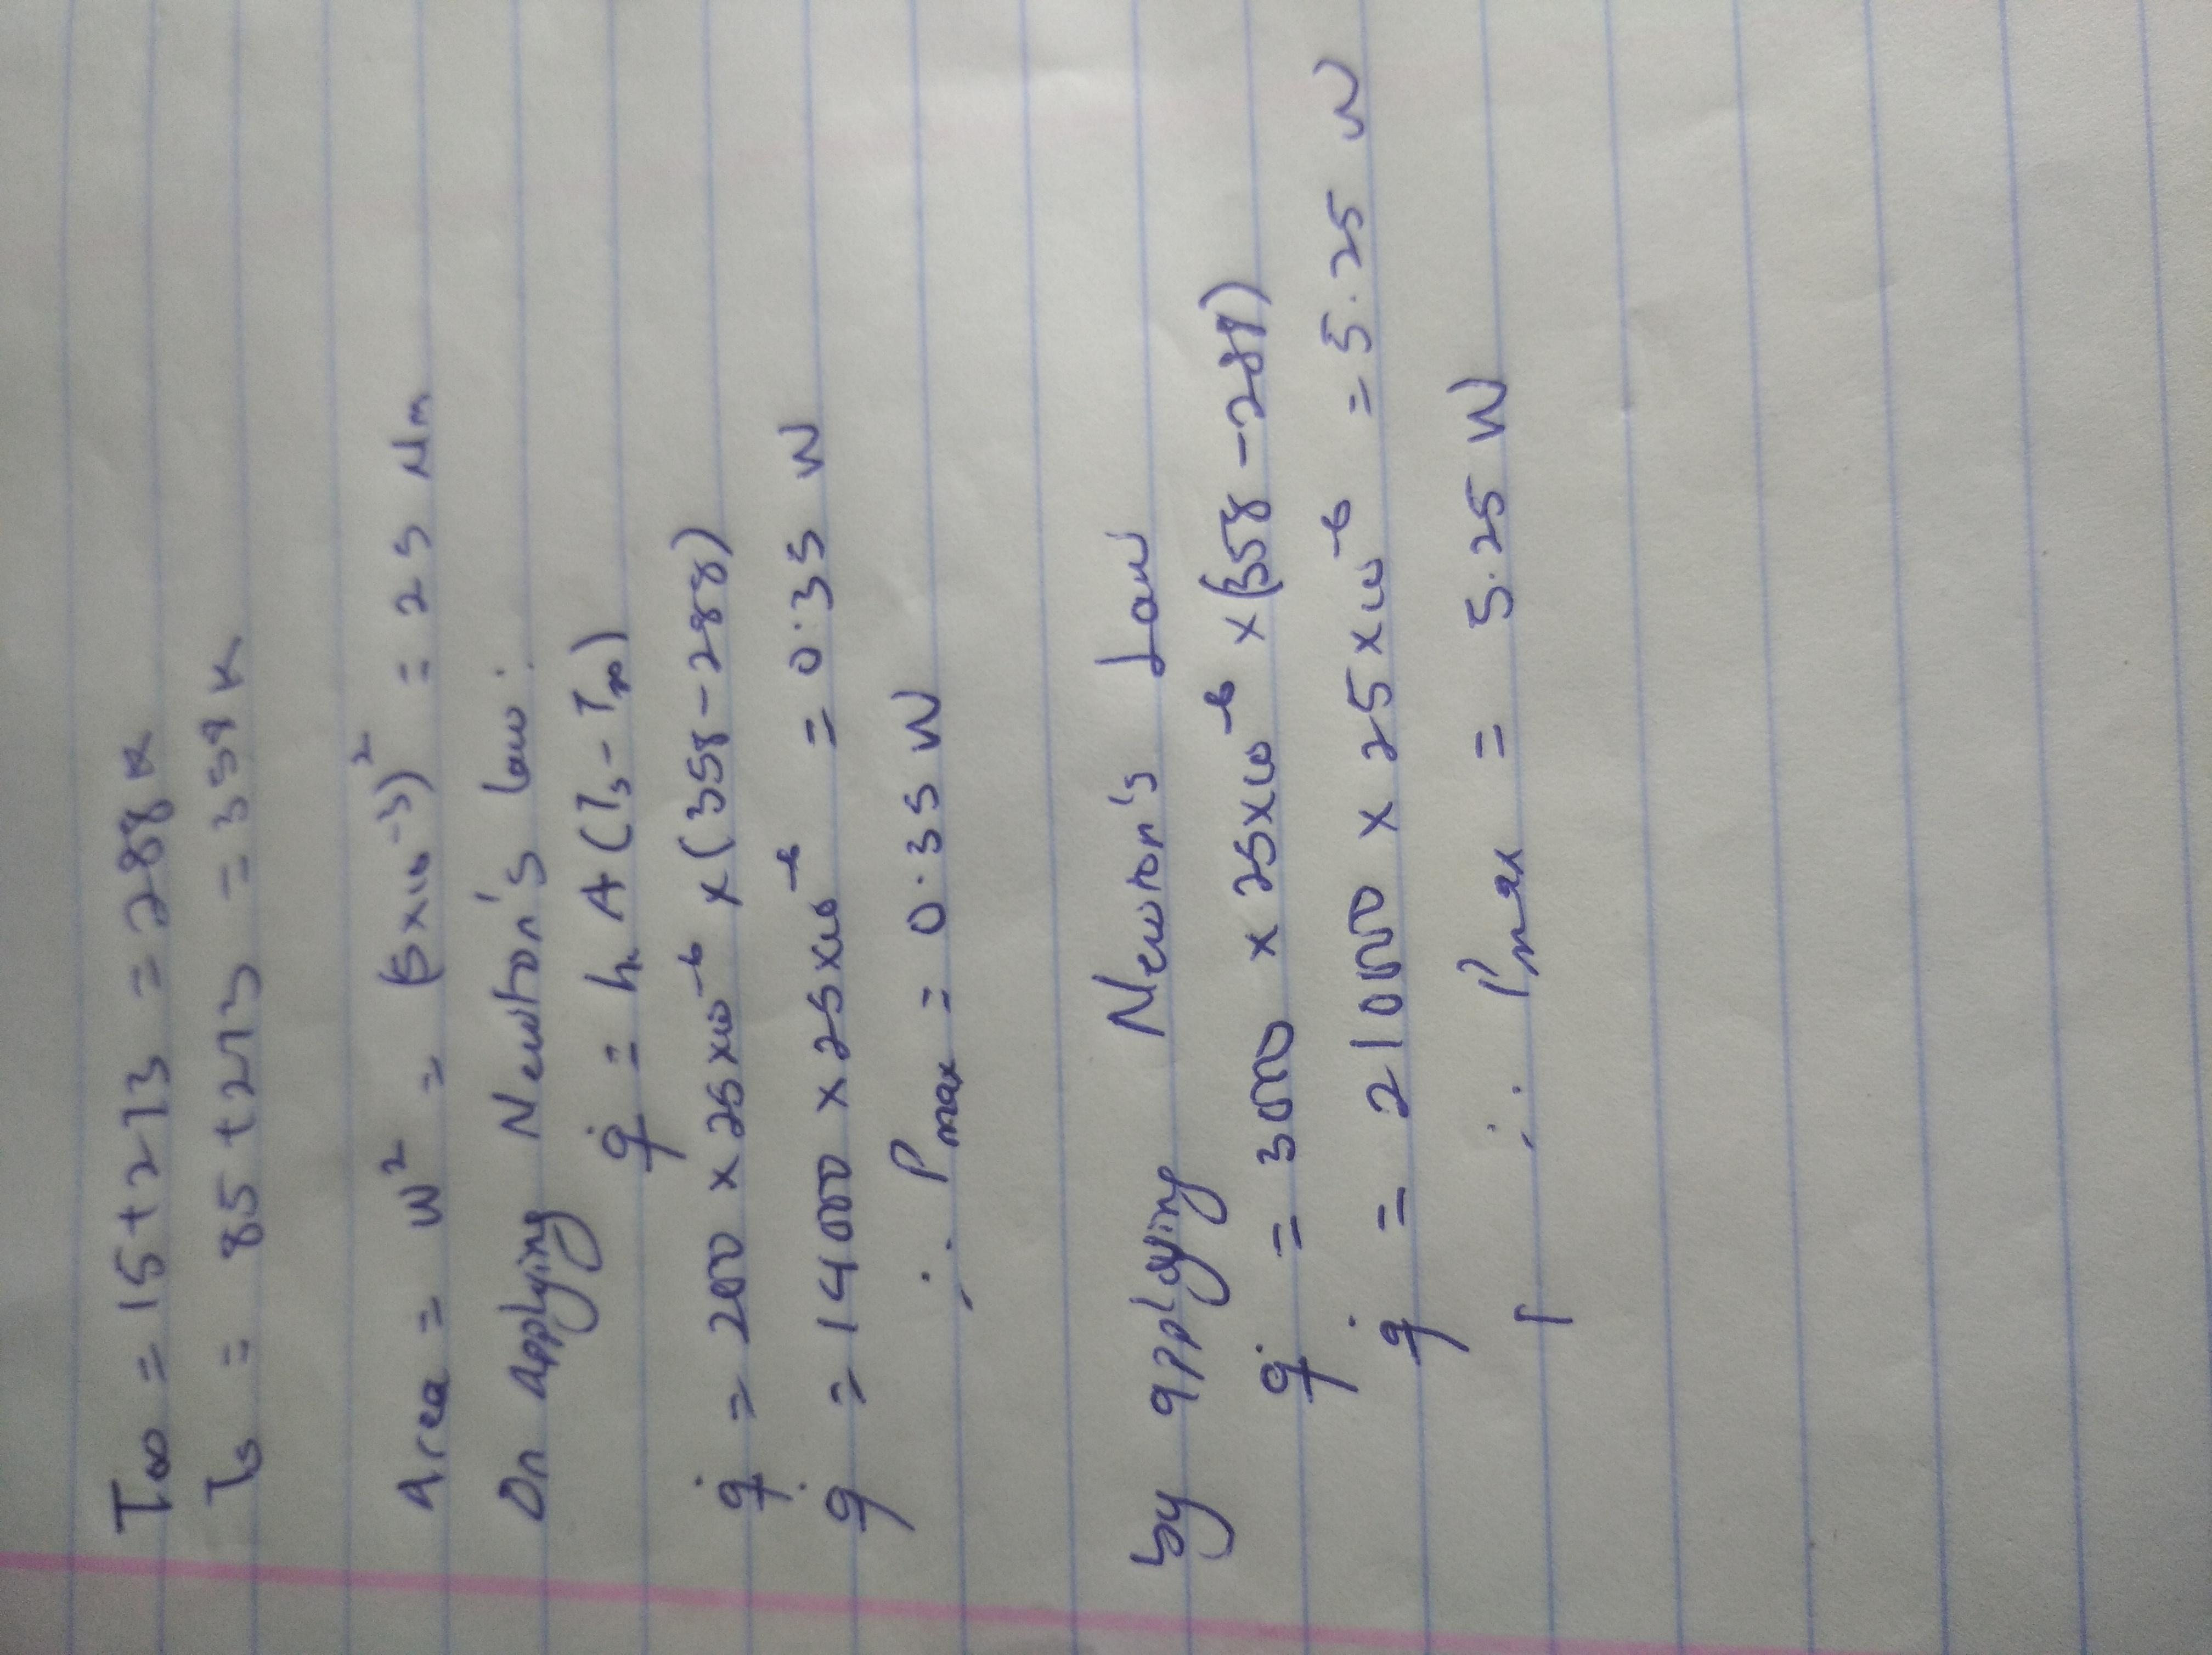 T∞ = 15+273 = 288 K
Ts = 85+273 = 358 K
Area = W² = (5×10⁻³)² = 25 Nm
On applying Newton's law:
q̇ = h A (Ts - T∞)
q̇ = 200 × 25×10⁻⁶ × (358-288)
q̇ = 14000 × 25×10⁻⁶ = 0.35 W
∴ Pmax = 0.35 W
by applying Newton's Law
q̇ = 3000 × 25×10⁻⁶ × (358-288)
q̇ = 21000 × 25×10⁻⁶ = 5.25 W
∴ Pmax = 5.25 W